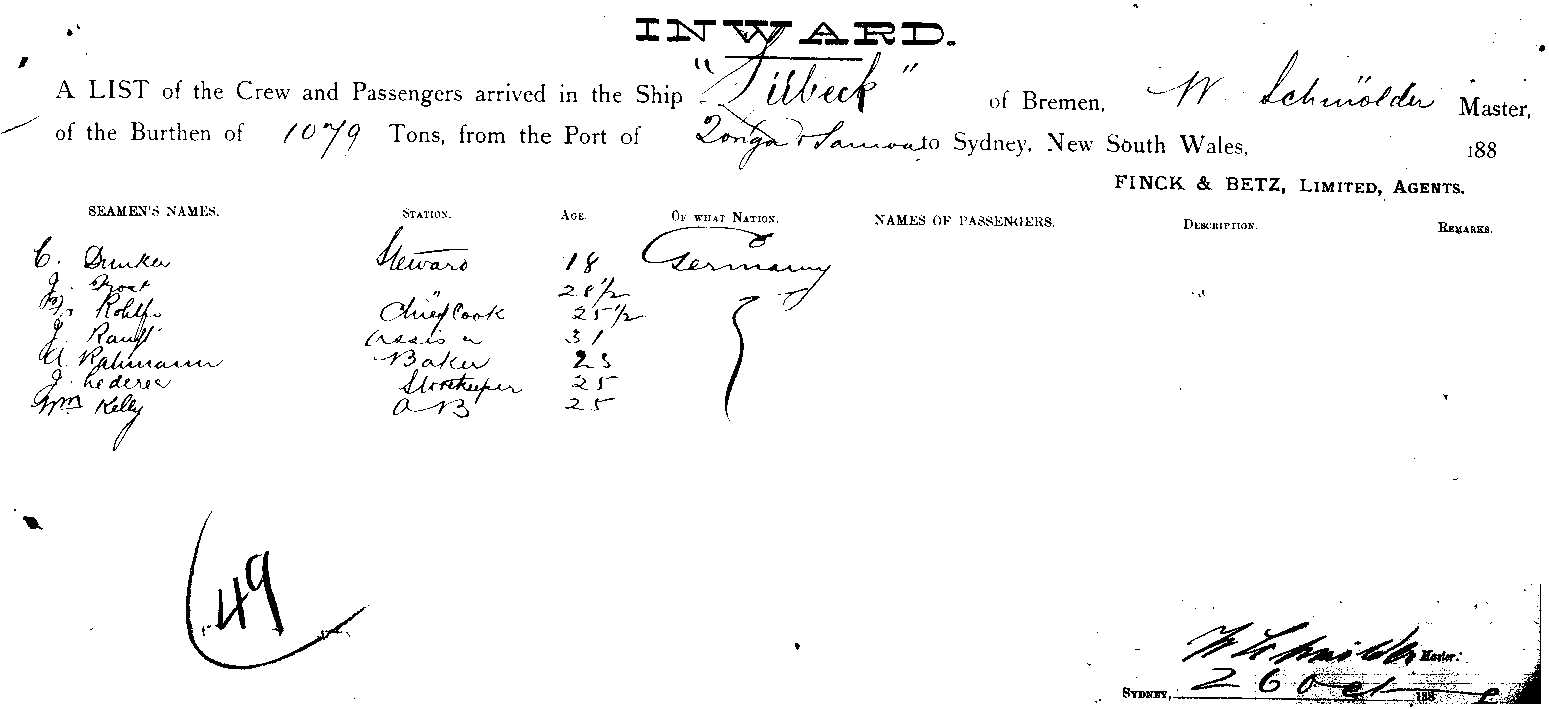 INWARD.
A LIST of the Crew and Passengers arrived in the Ship "Lübeck" of Bremen, W. Schmölder Master,
of the Burthen of 1079 Tons, from the Port of Tonga & Samoa to Sydney, New South Wales, 188
FINCK & BETZ, LIMITED, AGENTS.
SEAMEN'S NAMES. STATION. AGE. OF WHAT NATION. NAMES OF PASSENGERS. DESCRIPTION. REMARKS.
C. Dunker Steward 18 Germany
J. " 28½ "
Rohlfs Chief Cook 25½
J. Assis " 31
A. Rahmann Baker 23
J. Lederer Storekeeper 25
Wm Kelly AB 25
49
W Schmölder Master.
SYDNEY, 26 Oct 188